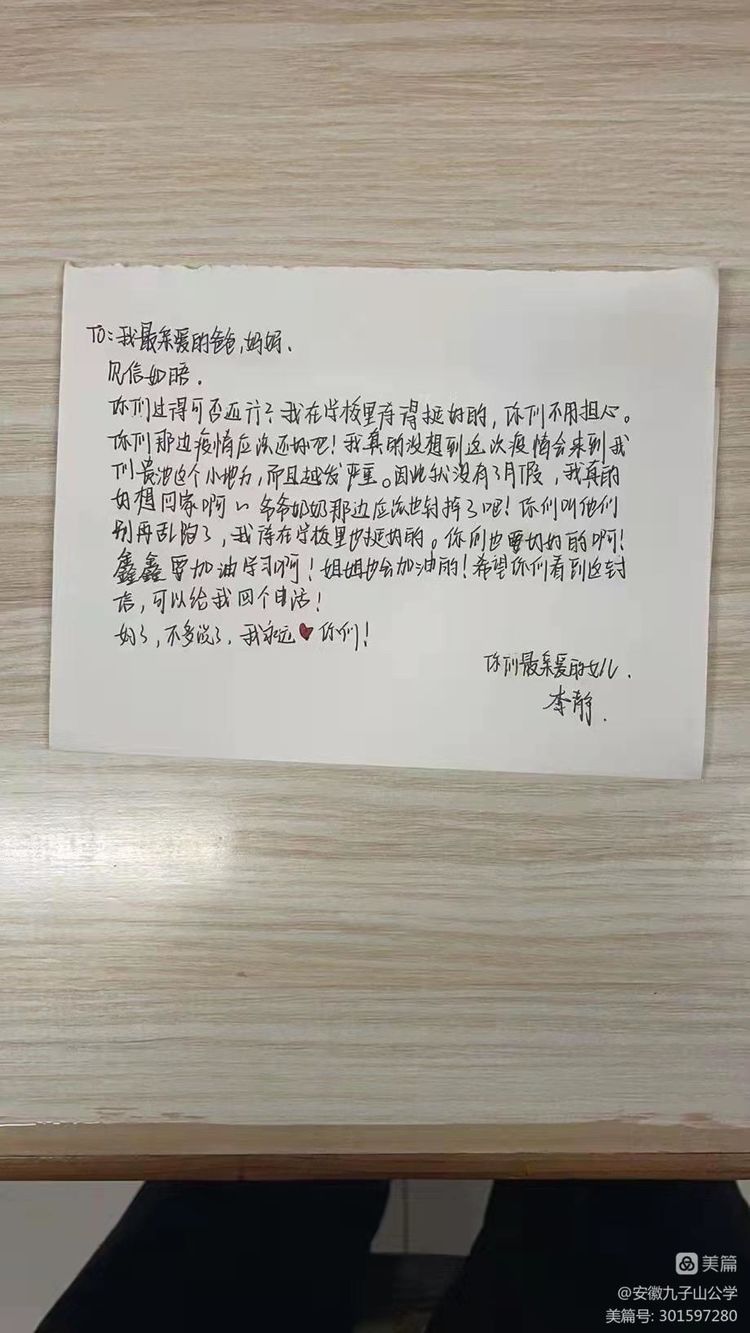 TO：我最亲爱的爸爸,妈妈.
见信如晤.
你们过得可否还行？我在学校里待得挺好的，你们不用担心。
你们那边疫情应该还好吧！我真的没想到这次疫情会来到我
们贵池这个小地方，而且越发严重。因此我没有了月假，我真的
好想回家啊～爷爷奶奶那边应该也封掉了吧！你们叫他们
别再乱跑了，我待在学校里也挺好的。你们也要好好的啊！
鑫鑫要加油学习啊！姐姐也会加油的！希望你们看到这封
信，可以给我回个电话！
好了，不多说了，我永远❤你们！
你们最亲爱的女儿.
李静.
美篇
@安徽九子山公学
美篇号: 301597280